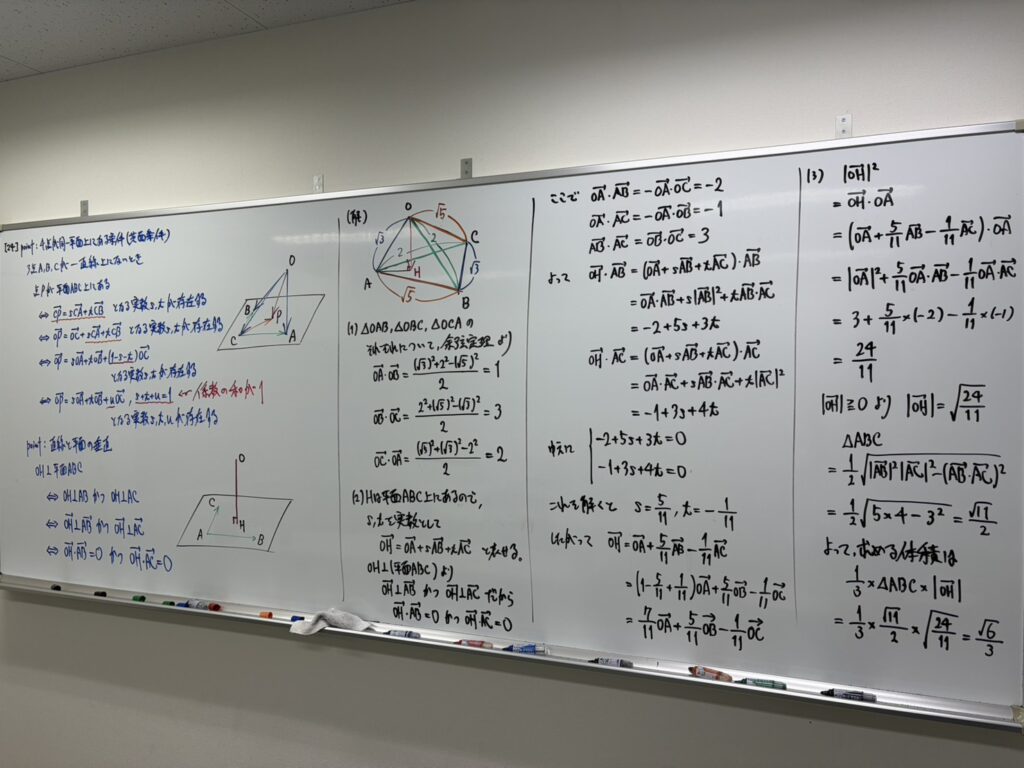 [24] point : 4点が同一平面上にある条件(共面条件)
3点A,B,Cが一直線上にないとき
点Pが平面ABC上にある
⇔ CP→=sCA→+tCB→ となる実数s,tが存在する
⇔ OP→=OC→+sCA→+tCB→ となる実数s,tが存在する
⇔ OP→=sOA→+tOB→+(1-s-t)OC→
となる実数s,tが存在する
⇔ OP→=sOA→+tOB→+uOC→, s+t+u=1 ← 係数の和が1
となる実数s,t,uが存在する
O
B
P
C
A
point : 直線と平面の垂直
OH⊥平面ABC
⇔ OH⊥AB かつ OH⊥AC
⇔ OH→⊥AB→ かつ OH→⊥AC→
⇔ OH→・AB→=0 かつ OH→・AC→=0
O
C
H
A
B
(解)
O
√5
√3
2
2
C
H
√3
A
√5
B
(1) △OAB, △OBC, △OCA の
それぞれについて, 余弦定理より
OA→・OB→ = ((√3)²+2²-(√5)²)/2 = 1
OB→・OC→ = (2²+(√5)²-(√3)²)/2 = 3
OC→・OA→ = ((√5)²+(√3)²-2²)/2 = 2
(2) Hは平面ABC上にあるので,
s,tを実数として
OH→=OA→+sAB→+tAC→ と表せる.
OH⊥(平面ABC) より
OH→⊥AB→ かつ OH→⊥AC→ だから
OH→・AB→=0 かつ OH→・AC→=0
ここで OA→・AB→=-OA→・OC→=-2
OA→・AC→=-OA→・OB→=-1
AB→・AC→=OB→・OC→=3
よって OH→・AB→=(OA→+sAB→+tAC→)・AB→
=OA→・AB→+s|AB→|²+tAB→・AC→
=-2+5s+3t
OH→・AC→=(OA→+sAB→+tAC→)・AC→
=OA→・AC→+sAB→・AC→+t|AC→|²
=-1+3s+4t
ゆえに { -2+5s+3t=0
-1+3s+4t=0
これを解くと s=5/11, t=-1/11
したがって OH→=OA→+5/11AB→-1/11AC→
=(1-5/11+1/11)OA→+5/11OB→-1/11OC→
=7/11OA→+5/11OB→-1/11OC→
(3) |OH→|²
=OH→・OA→
=(OA→+5/11AB→-1/11AC→)・OA→
=|OA→|²+5/11OA→・AB→-1/11OA→・AC→
=3+5/11×(-2)-1/11×(-1)
=24/11
|OH→|≧0 より |OH→|=√(24/11)
△ABC
=1/2√(|AB→|²|AC→|²-(AB→・AC→)²)
=1/2√(5×4-3²)=√11/2
よって, 求める体積は
1/3×△ABC×|OH→|
=1/3×√11/2×√(24/11)=√6/3